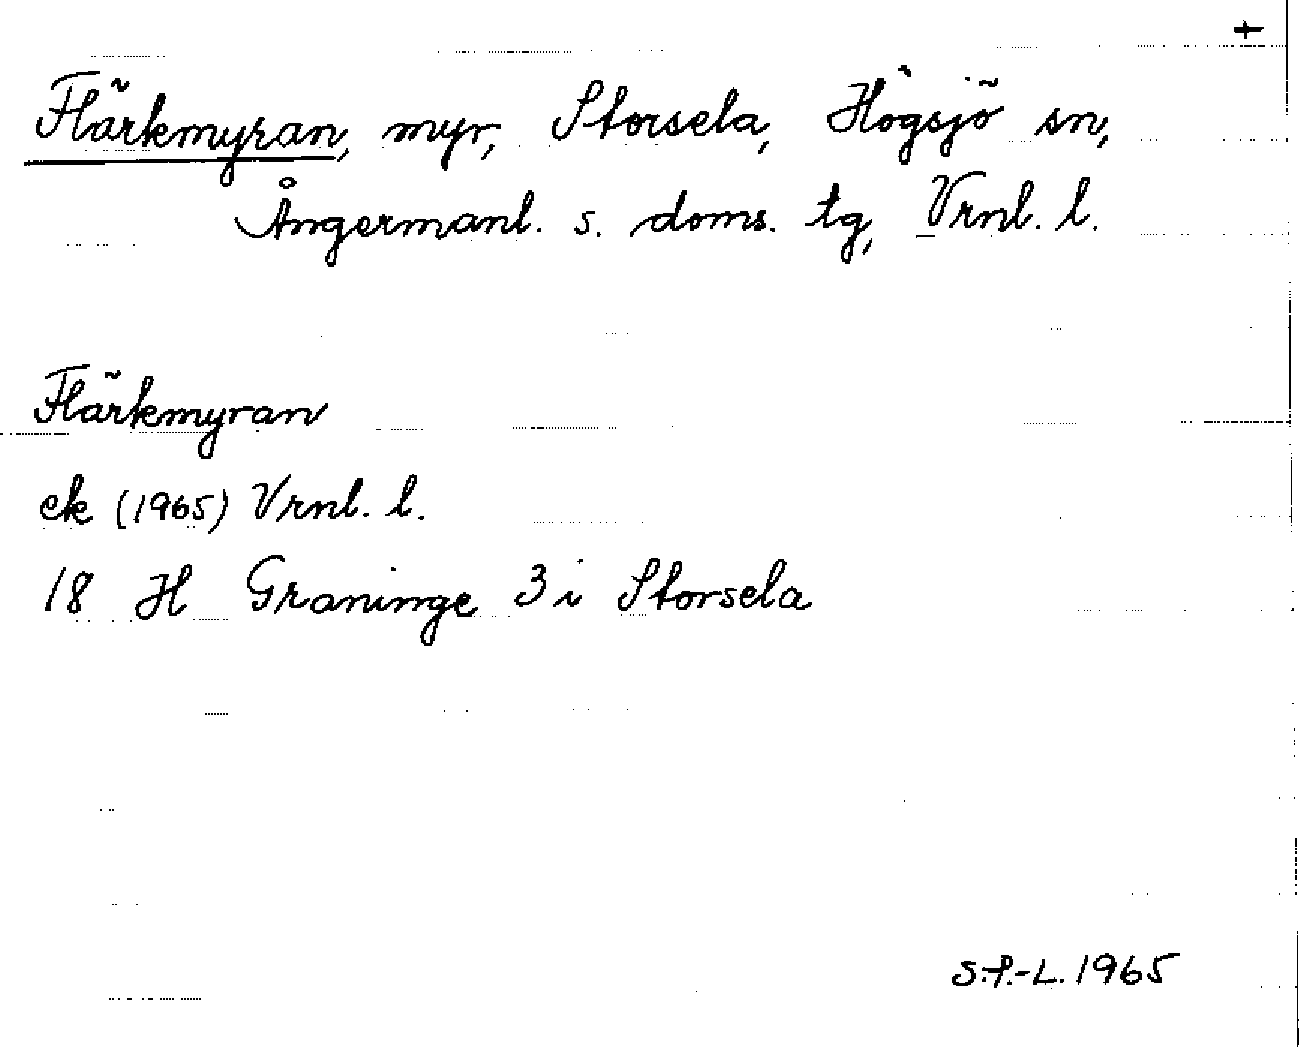 +
Flärkmyran, myr, Storsela, Högsjö sn,
Ångermanl. s. doms. tg, Vrnl. l.
Flärkmyran
ek (1965) Vrnl. l.
18 H Graninge 3 i Storsela
S.P.-L. 1965